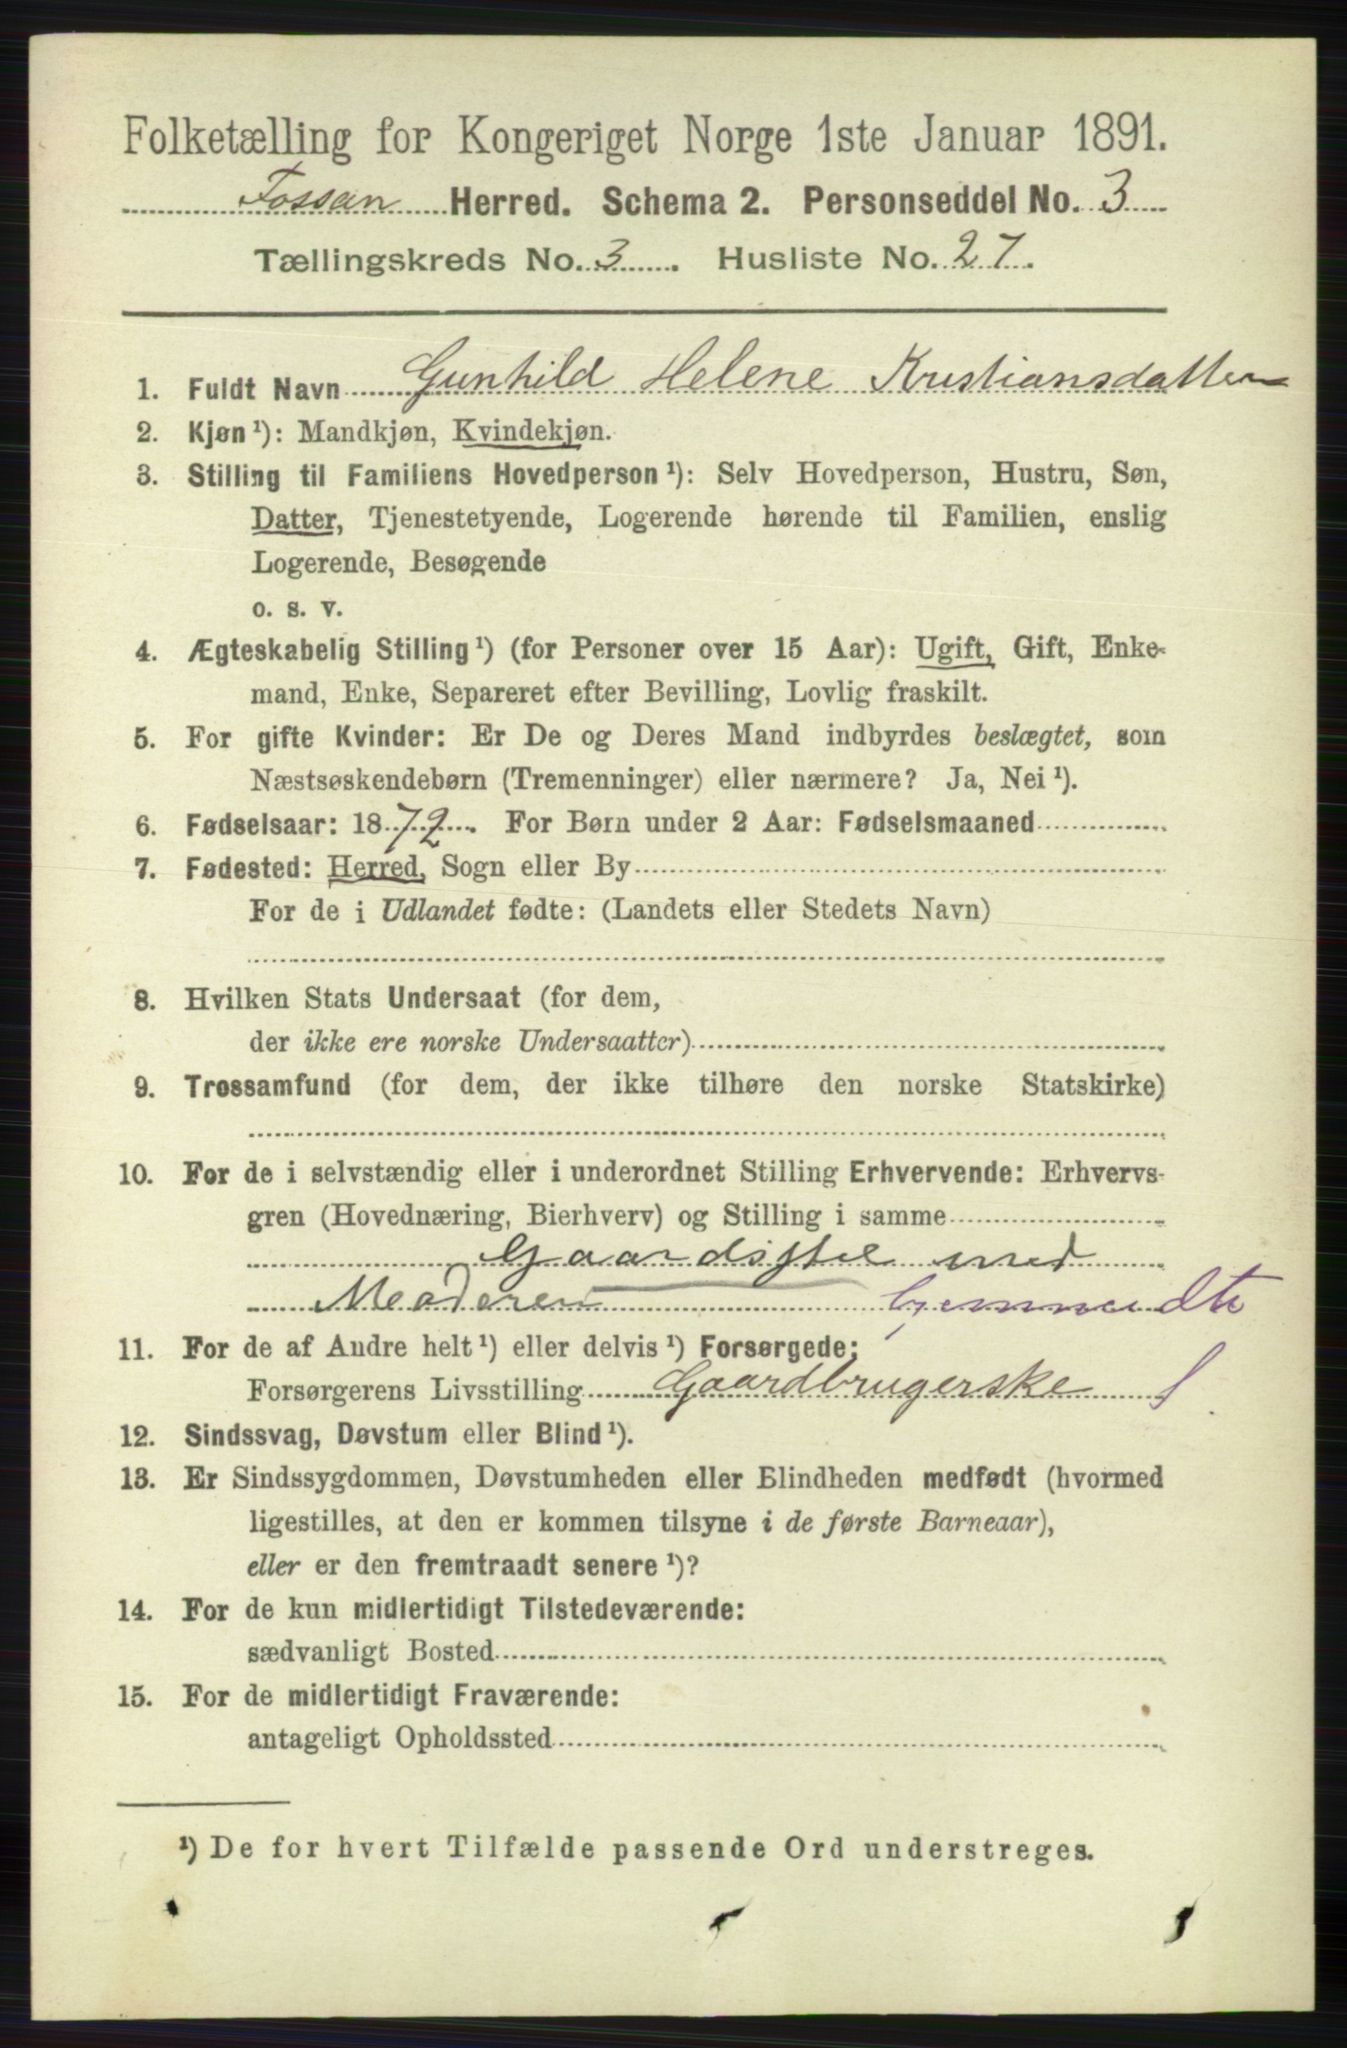 Folketælling for Kongeriget Norge 1ste Januar 1891.
Fossan Herred. Schema 2. Personseddel No. 3
Tællingskreds No. 3. Husliste No. 27.
1. Fuldt Navn Gunhild Helene Kristiansdatter
2. Kjøn ¹): Mandkjøn, Kvindekjøn.
3. Stilling til Familiens Hovedperson ¹): Selv Hovedperson, Hustru, Søn,
Datter, Tjenestetyende, Logerende hørende til Familien, enslig
Logerende, Besøgende
o. s. v.
4. Ægteskabelig Stilling ¹) (for Personer over 15 Aar): Ugift, Gift, Enke-
mand, Enke, Separeret efter Bevilling, Lovlig fraskilt.
5. For gifte Kvinder: Er De og Deres Mand indbyrdes beslægtet, som
Næstsøskendebørn (Tremenninger) eller nærmere? Ja, Nei ¹).
6. Fødselsaar: 1872. For Børn under 2 Aar: Fødselsmaaned
7. Fødested: Herred, Sogn eller By
For de i Udlandet fødte: (Landets eller Stedets Navn)
8. Hvilken Stats Undersaat (for dem,
der ikke ere norske Undersaatter)
9. Trossamfund (for dem, der ikke tilhøre den norske Statskirke)
10. For de i selvstændig eller i underordnet Stilling Erhvervende: Erhvervs-
gren (Hovednæring, Bierhverv) og Stilling i samme
Gaardsstel med
Moderen
11. For de af Andre helt ¹) eller delvis ¹) Forsørgede:
Forsørgerens Livsstilling Gaardbrugerske
12. Sindssvag, Døvstum eller Blind ¹).
13. Er Sindssygdommen, Døvstumheden eller Blindheden medfødt (hvormed
ligestilles, at den er kommen tilsyne i de første Barneaar),
eller er den fremtraadt senere ¹)?
14. For de kun midlertidigt Tilstedeværende:
sædvanligt Bosted
15. For de midlertidigt Fraværende:
antageligt Opholdssted
¹) De for hvert Tilfælde passende Ord understreges.